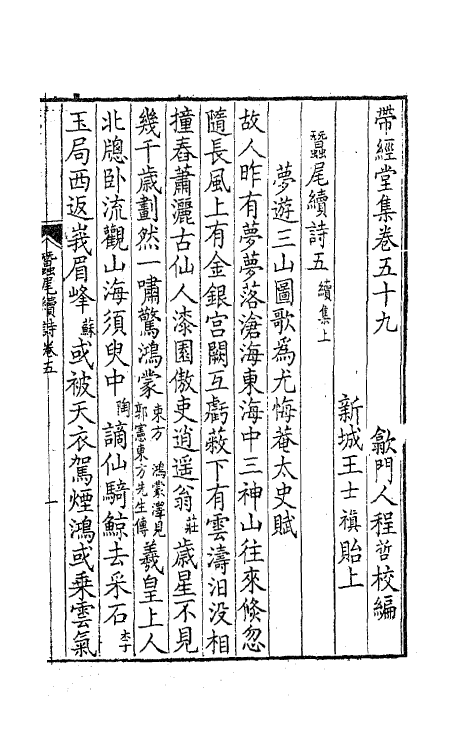 帶經堂集卷五十九　歙門人程哲校編
新城王士禛貽上
蠶尾續詩五續集上
夢遊三山圖歌為尤悔菴太史賦
故人昨有夢夢落滄海東海中三神山往來倏忽
隨長風上有金銀宫闕互虧蔽下有雲濤汩没相
撞舂蕭灑古仙人漆園傲吏逍遥翁莊歲星不見
幾千歲劃然一嘯驚鴻蒙東方　鴻蒙澤見郭憲東方先生傳羲皇上人
北牕卧流觀山海須臾中陶謫仙騎鯨去采石李
玉局西返峩眉峰蘇或被天衣駕煙鴻或乘雲氣
蠶尾續詩卷五
一